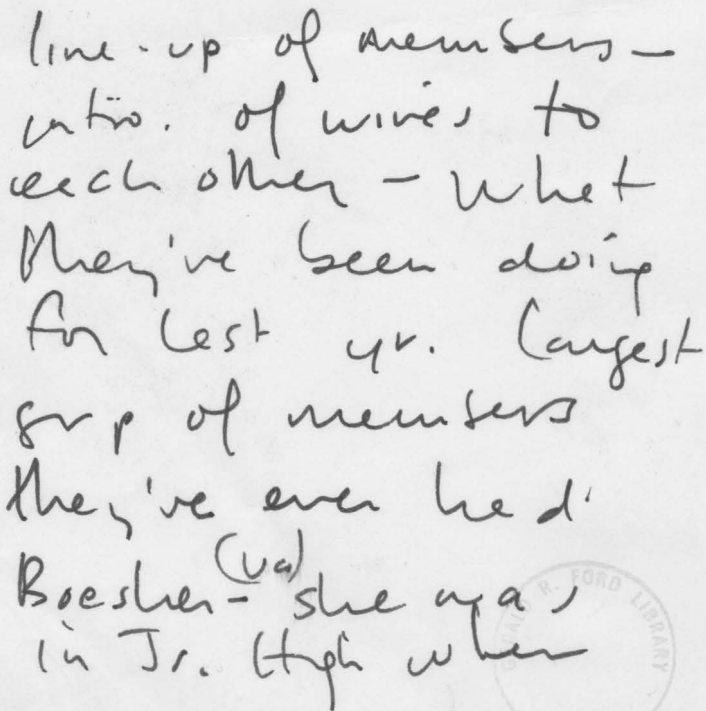 line-up of members –
intro. of wives to
each other – what
they've been doing
for last yr. Largest
grp of members
they've ever had.
(Va)
Boesher – she was
in Jr. High when
GERALD R. FORD LIBRARY